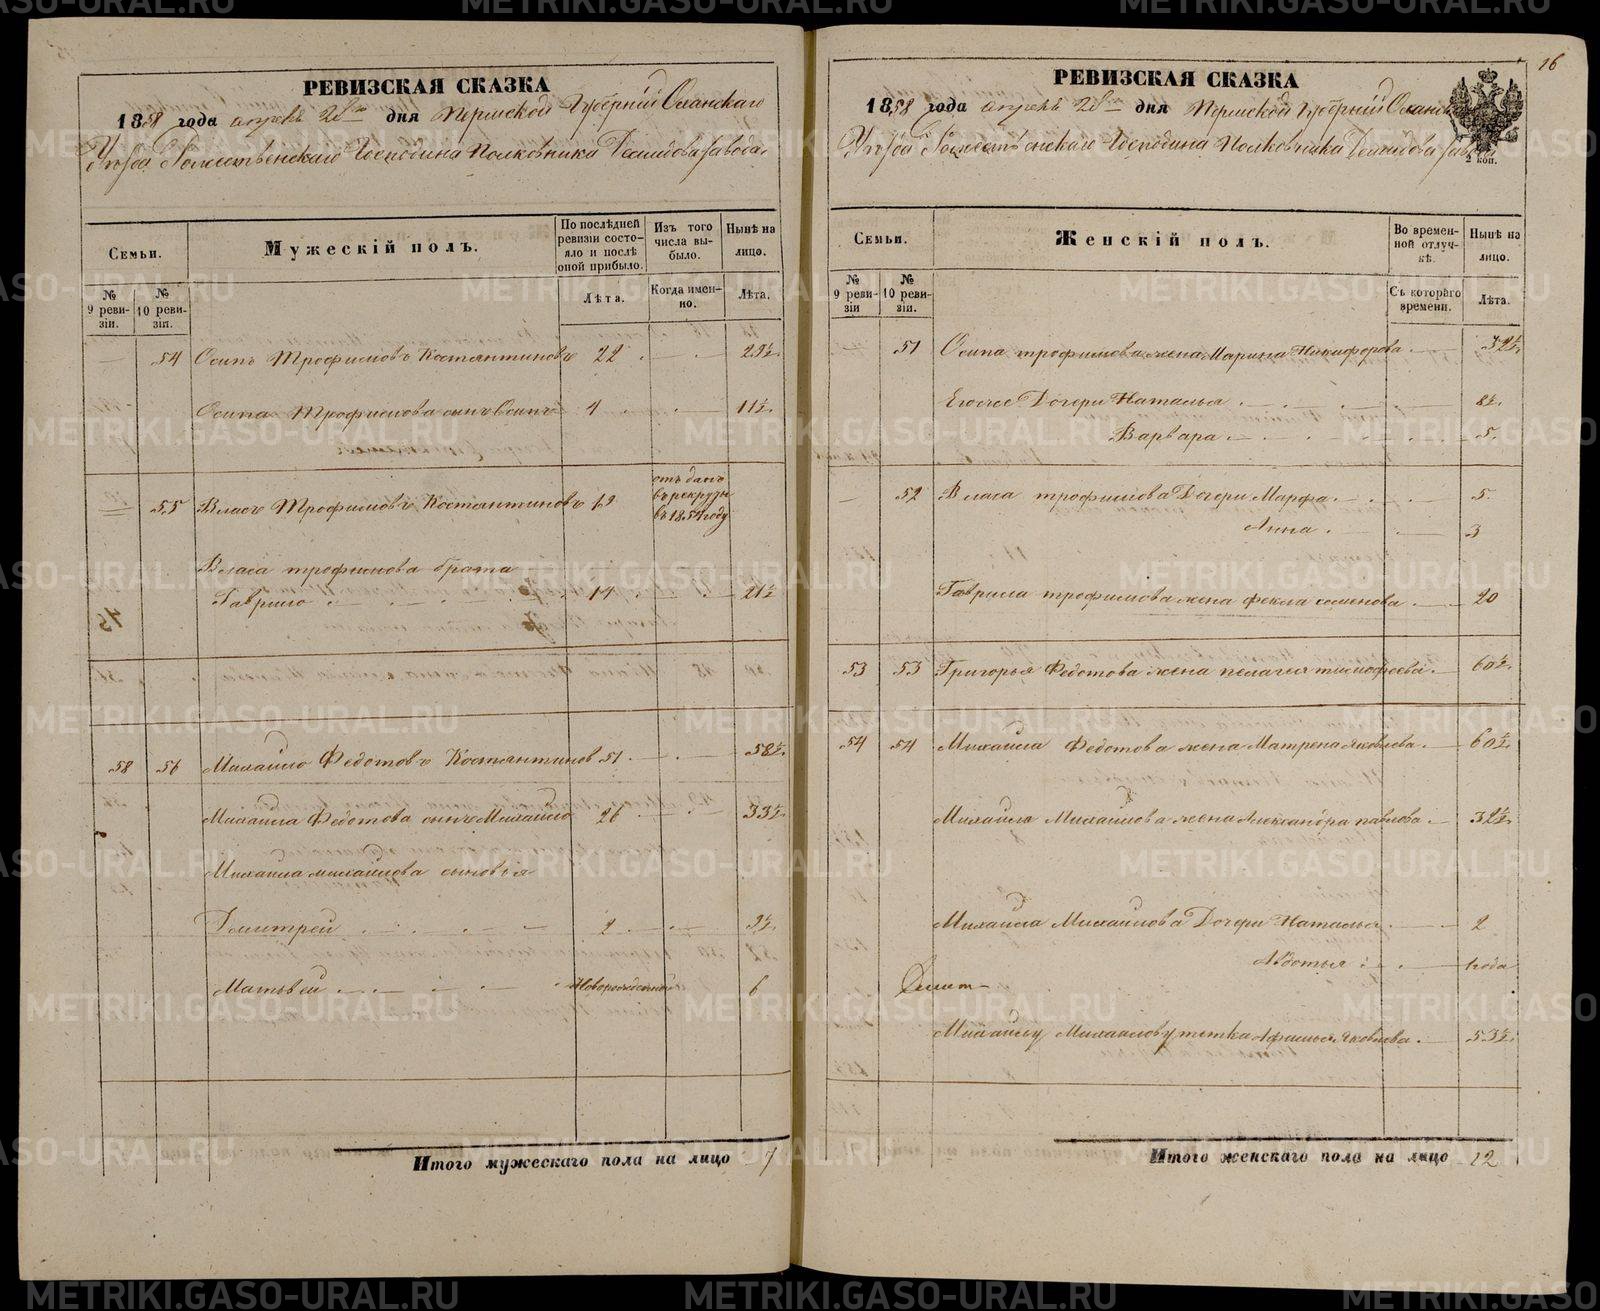 РЕВИЗСКАЯ СКАЗКА
1858 года апреля 28го дня Пермской Губернiи Оханскаго
Уѣзда Рожественскаго Господина Полковника Демидова завода.
Семьи.
Мужескiй полъ.
По послѣдней ревизiи состояло и послѣ оной прибыло.
Изъ того числа выбыло.
Нынѣ на лицо.
№ 9 ревизiи.
№ 10 ревизiи.
Лѣта.
Когда именно.
Лѣта.
— 54 Осипъ Трофимовъ Костянтиновъ 22 . — . — 29½.
Осипа Трофимова сынъ Осипъ 4 . . — 11½.
55 Власъ Трофимовъ Костянтиновъ 19 отъданъ в рекруты въ 1854 году
Власа трофимова брата
Гаврило . — . — . — 14 . . — 21½
75
58 56 Михайло Федотовъ Костянтинов 51 . — . — 58½.
Михайла Федотова сынъ Михайло 26 . — . — 33½.
Михаила михаилова сыновья
Дмитрей . — . — . — 2 . — . — 9½.
Матьвей . — . — . — Новорожденной 6
Итого мужескаго пола на лицо 7
16
РЕВИЗСКАЯ СКАЗКА
1858 года апреля 28го дня Пермской Губернiи Оханскаго
Уѣзда Рожественскаго Господина Полковника Демидова завода
2 коп.
Семьи.
Женскiй полъ.
Во временной отлучкѣ.
Нынѣ на лицо.
№ 9 ревизiи
№ 10 ревизiи.
Съ котораго времени.
Лѣта.
51 Осипа трофимова жена Марина Никифорова . — 32½.
Егожее Дочери Наталья . — . — . — 8½.
Варвара . — . — . — 5.
— 52 Власа трофимова Дочери Марфа . — . — 5.
Анна . — . — 3
Гаврила трофимова жена фекла семенова . — 20
53 53 Григорья Федотова жена пелагея тимофеева . — 60½.
54 54 Михаила Федотова жена Матрена Яковлева . — 60½.
Михаила Михаилова жена Александра павлова . — 32½.
Михаила Михаилова Дочери Наталья . — . — 2
Авдотья . — . — 1 года
Михаилу Михаилову тетка Афимья Яковлева . — 53½.
Итого женскаго пола на лицо 12
METRIKI.GASO-URAL.RU